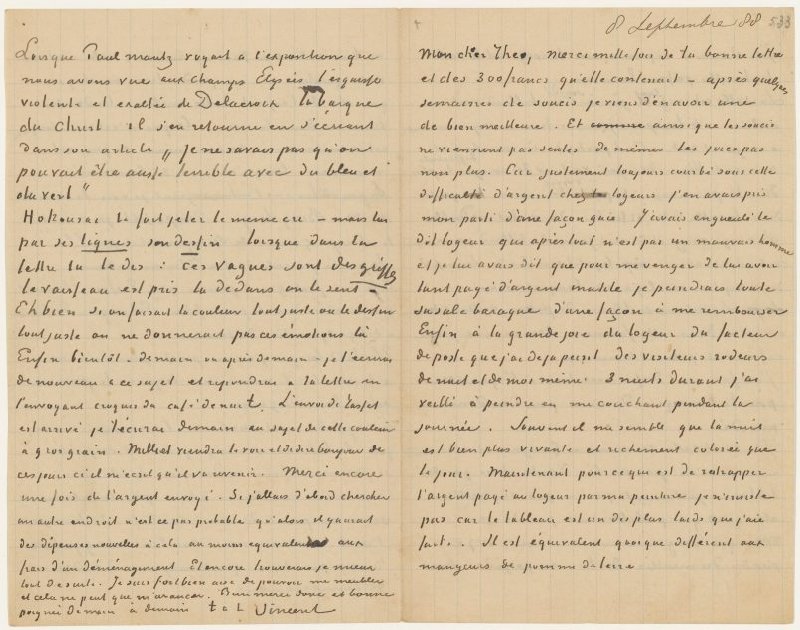 Lorsque Paul mantz voyait à l'exposition que
nous avons vue aux champs Elysées l'esquisse
violente et exaltée de Delacroix la barque
du Christ il s'en retourne en s'écriant
dans son article „ je ne savais pas qu'on
pouvait être aussi terrible avec du bleu et
du vert"
Hokousai te fait jeter le meme cri – mais lui
par ses lignes son dessin lorsque dans ta
lettre tu te dis : ces vagues sont des griffes
le vaisseau est pris là dedans on le sent.
Eh bien si on faisait la couleur tout juste ou le dessin
tout juste on ne donnerait pas ces émotions là
Enfin bientôt – demain ou après demain – je t'écrirai
de nouveau à ce sujet et repondrai à ta lettre en
t'envoyant croquis du café de nuit. L'envoi de Tasset
est arrivé je t'écrirai demain au sujet de cette couleur
à gros grain. Milliet viendra te voir et te dire bonjour de
ces jours ci il m'écrit qu'il va revenir. Merci encore
une fois de l'argent envoyé. Si j'allais d'abord chercher
un autre endroit n'est ce pas probable qu'alors il y aurait
des dépenses nouvelles à cela au moins equivalentes aux
frais d'un déménagement Et encore trouverais je mieux
tout de suite. Je suis fort bien aise de pouvoir me meubler
et cela ne peut que m'avancer. Bien merci donc et bonne
poignée de main à demain t à t Vincent
8 Septembre 88 533
Mon cher Theo, merci mille fois de ta bonne lettre
et des 300 francs qu'elle contenait – après quelques
semaines de soucis je viens d'en avoir une
de bien meilleure. Et comme ainsi que les soucis
ne viennent pas seules de mêmes les joies pas
non plus. Car justement toujours courbé sous cette
difficulté d'argent chez les logeurs j'en avais pris
mon parti d'une façon gaie J'avais engueulé le
dit logeur qui après tout n'est pas un mauvais homme
et je lui avais dit que pour me venger de lui avoir
tant payé d'argent inutile je peindrais toute
sa sale baraque d'une façon à me rembourser
Enfin à la grande joie du logeur du facteur
de poste que j'ai dejà peint des visiteurs rodeurs
de nuit et de moi même 3 nuits durant j'ai
veillé à peindre en me couchant pendant la
journée. Souvent il me semble que la nuit
est bien plus vivante et richement colorée que
le jour. Maintenant pour ce qui est de ratrapper
l'argent payé au logeur par ma peinture je n'insiste
pas car le tableau est un des plus laids que j'aie
faits. Il est équivalent quoique différent aux
mangeurs de pomme de terre